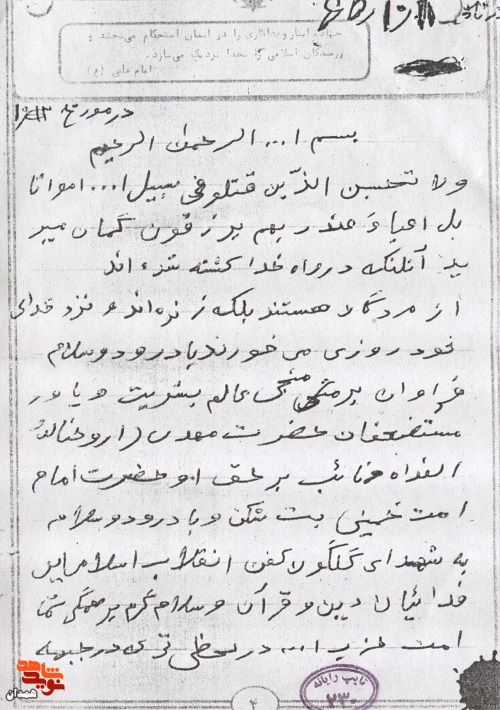 جهاد، ایثار و فداکاری را در انسان استحکام می‌بخشد و
رزمندگان اسلامی را بخدا نزدیک می‌سازد.
امام علی (ع)
در مورخ
بسم ا... الرحمن الرحیم
ولا تحسبن الذین قتلو فی سبیل ا... امواتا
بل احیاء عند ربهم یرزقون گمان مبر
ید آنانکه در راه خدا کشته شده اند
از مردگان هستند بلکه زنده‌اند و نزد خدای
خود روزی می خورند با درود و سلام
فراوان بر منجی عالم بشریت و یاور
مستضعفان حضرت مهدی (ارواحنا له
الفداه و نائب بر حق او حضرت امام
امت خمینی بت شکن و با درود و سلام
به شهدای گلگون کفن انقلاب اسلامی این
فدائیان دین و قرآن و سلام گرم بر همگی شما
امت حزب ا... در
در جبهه
تایپ رایانه
۲۳۰
۴
نوید شاهد
همدان